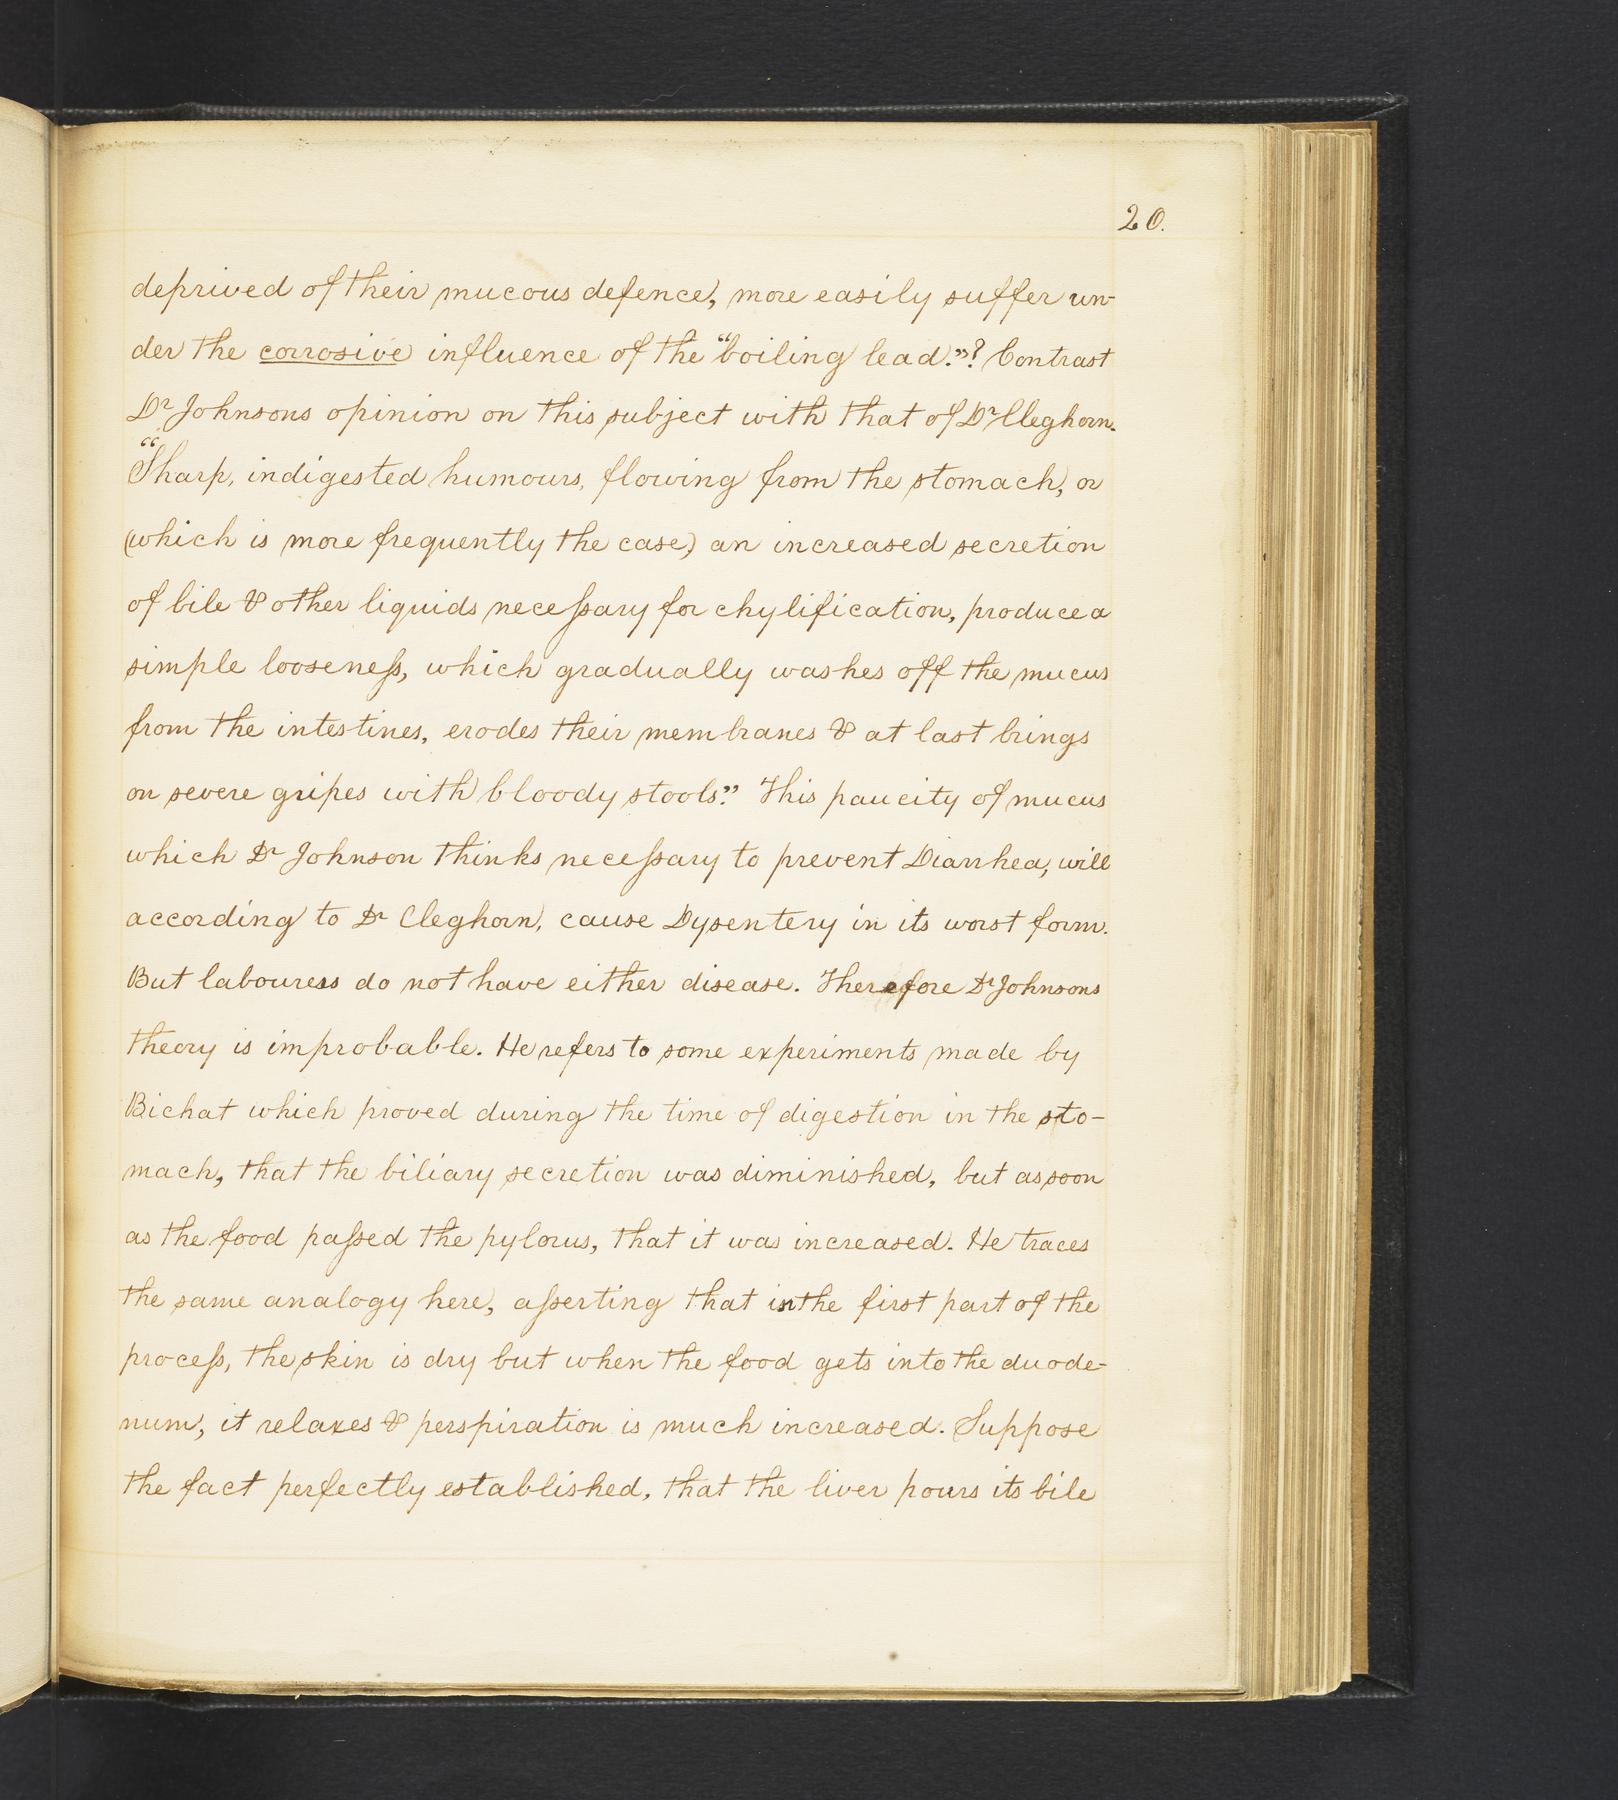 20.
deprived of their mucous defence, more easily suffer un-
der the corrosive influence of the "boiling lead."? Contrast
Dr Johnsons opinion on this subject with that of Dr Cleghorn.
"Sharp, indigested humours, flowing from the stomach, or
(which is more frequently the case) an increased secretion
of bile & other liquids necessary for chylification, produce a
simple looseness, which gradually washes off the mucus
from the intestines, erodes their membranes & at last brings
on severe gripes with bloody stools." This paucity of mucus
which Dr Johnson thinks necessary to prevent Diarrhea, will
according to Dr Cleghorn, cause Dysentery in its worst form.
But labourers do not have either disease. Therefore Dr Johnsons
theory is improbable. He refers to some experiments made by
Bichat which proved during the time of digestion in the sto-
mach, that the biliary secretion was diminished, but as soon
as the food passed the pylorus, that it was increased. He traces
the same analogy here, asserting that in the first part of the
process, the skin is dry but when the food gets into the duode-
num, it relaxes & perspiration is much increased. Suppose
the fact perfectly established, that the liver pours its bile